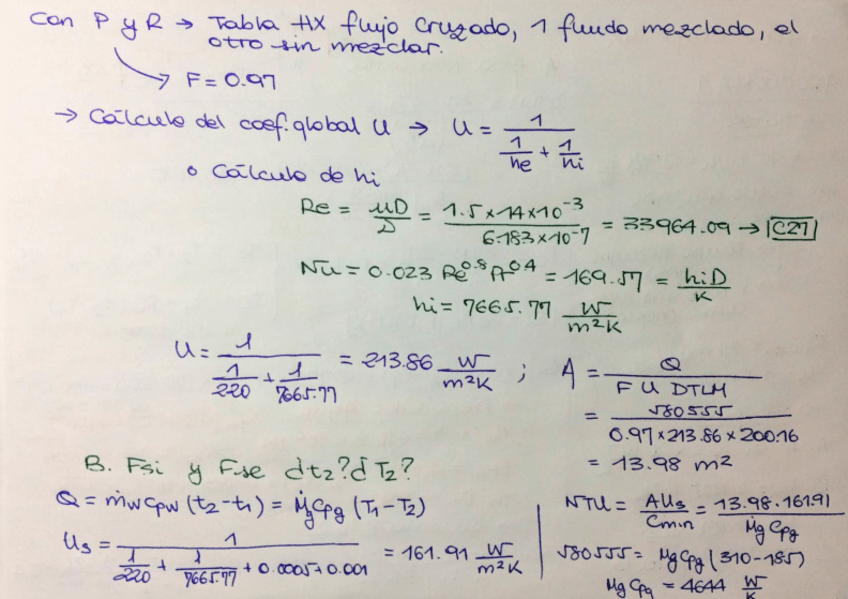 Con P y R → Tabla HX flujo cruzado, 1 fluido mezclado, el
otro sin mezclar.
→ F = 0.97
→ Cálculo del coef. global U → U = 1 / (1/he + 1/hi)
o Cálculo de hi
Re = uD/ν = 1.5×14×10⁻³ / 6.183×10⁻⁷ = 33964.09 → C27
Nu = 0.023 Re^0.8 Pr^0.4 = 169.57 = hiD/K
hi = 7665.77 W/m²K
U = 1 / (1/220 + 1/7665.77) = 213.86 W/m²K ; A = Q / (F U DTLM)
= 580555 / (0.97×213.86×200.16)
= 13.98 m²
B. Fsi y Fse ¿t2? ¿T2?
Q = ṁw Cpw (t2-t1) = Ṁg Cpg (T1-T2)
Us = 1 / (1/220 + 1/7665.77 + 0.0005 + 0.001) = 161.91 W/m²K
NTU = AUs/Cmin = 13.98·161.91 / Mg Cpg
580555 = Mg Cpg (310-185)
Mg Cpg = 4644 W/K